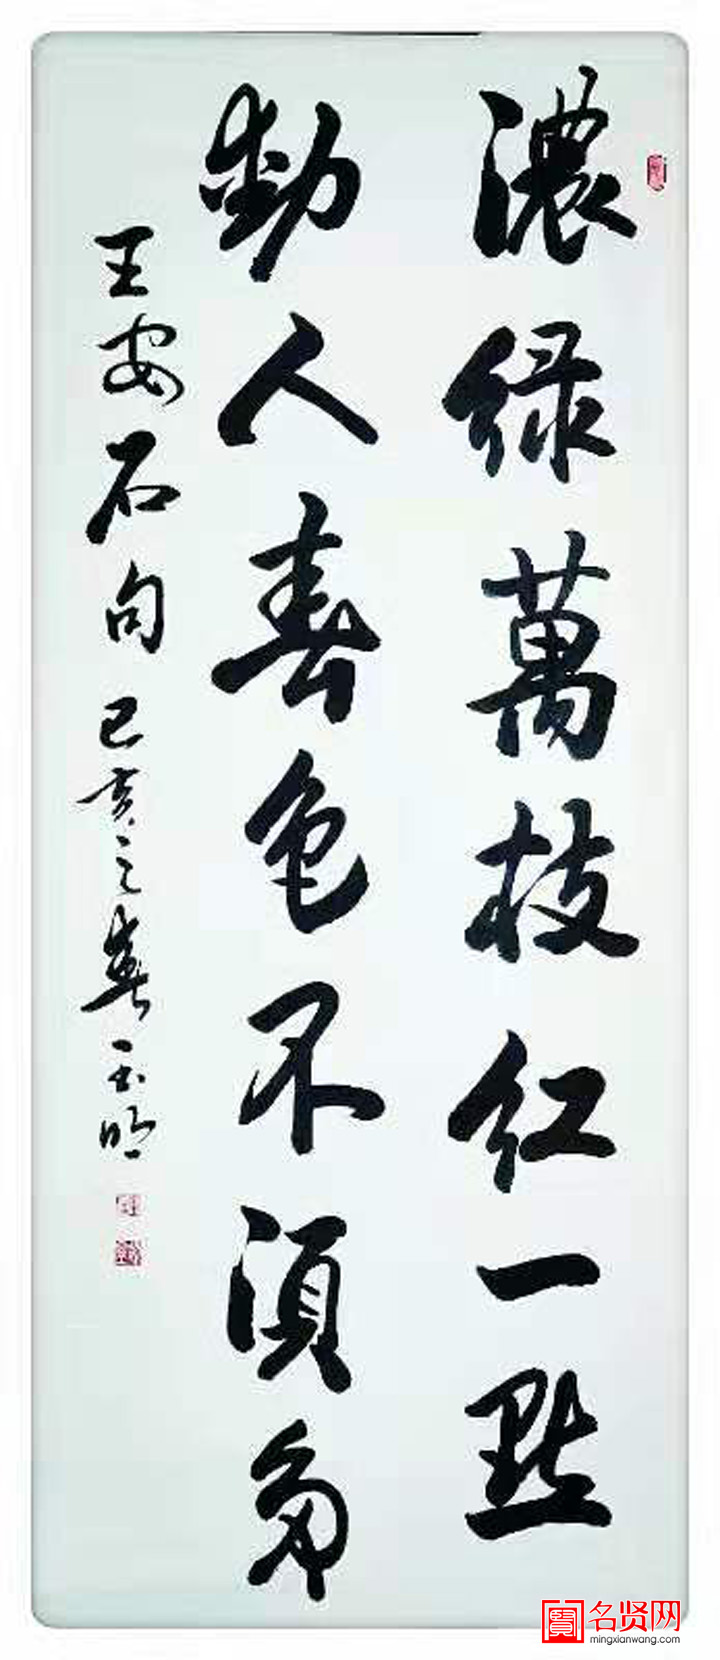 濃绿萬枝红一點
動人春色不須多
王安石句 己亥之春 玉
名贤网
mingxianwang.com